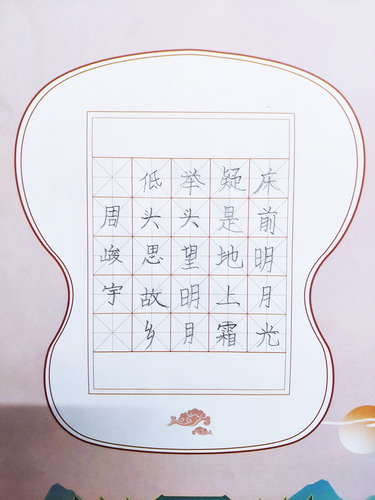 床前明月光
疑是地上霜
举头望明月
低头思故乡
周峻宇